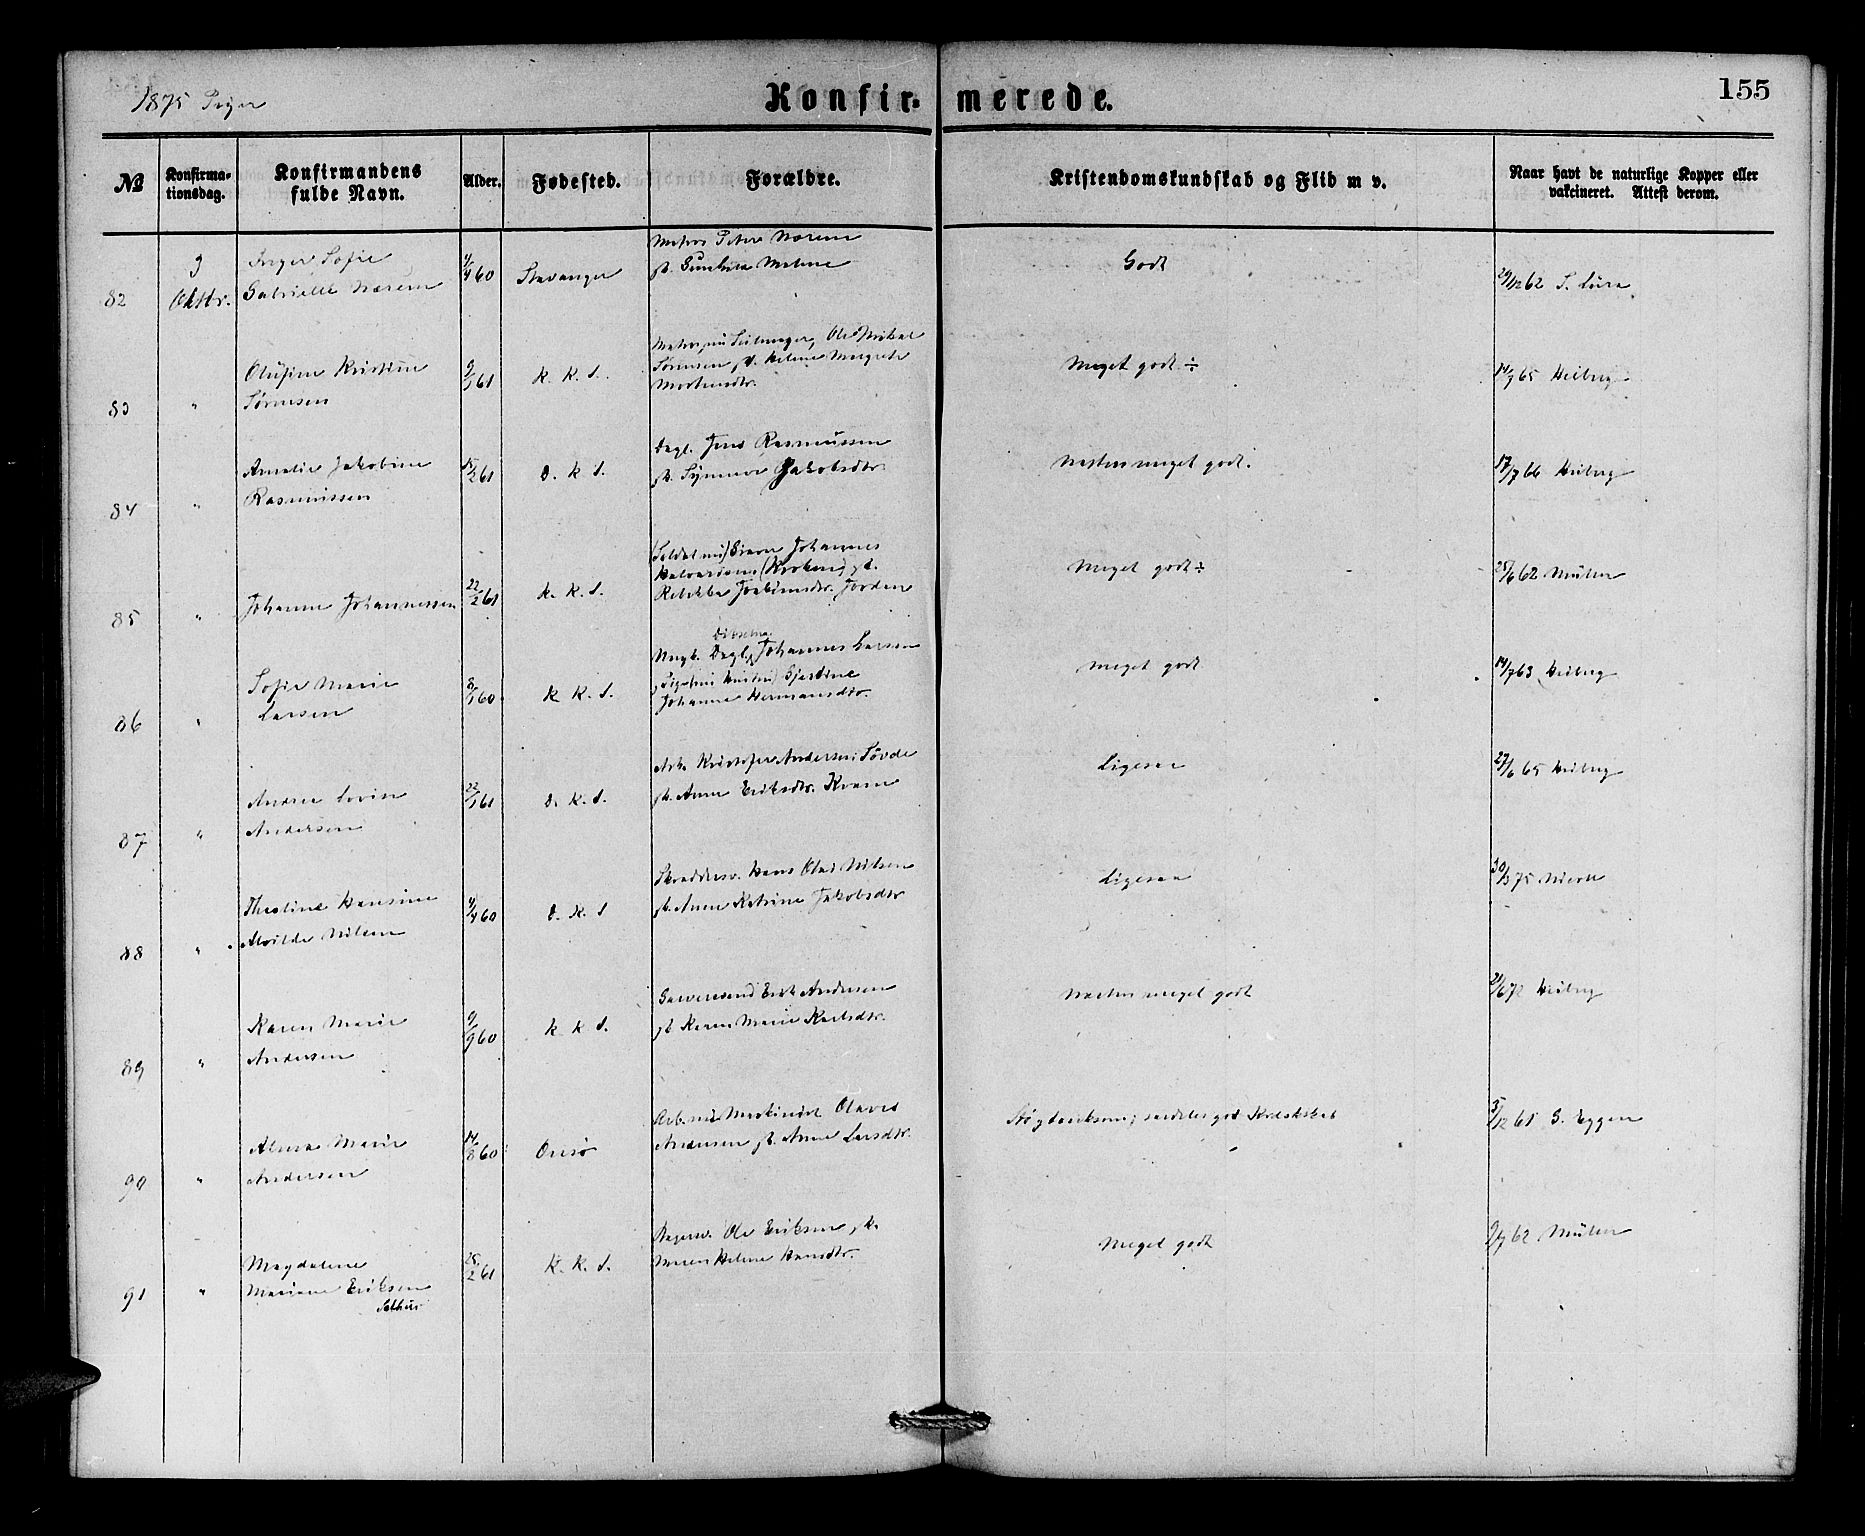 1875 Piger
Konfirmerede.
155
№
Konfirmationsdag.
Konfirmandens fulde Navn.
Alder.
Fødested.
Forældre.
Kristendomskundskab og Flid m v.
Naar havt de naturlige Kopper eller vakcineret. Attest derom.
82 3 Oktbr. Inger Sofie Gabrielle Nærem 9/4 60 Stavanger
Matros Peter Nærem
Malene
Godt
29/12 62 S. Lura
83 " Olufine Kristine Sørensen 9/1 61 K. K. S.
Matros, nu Ole Mikal
Sørensen Helene Margrete
Mortensdtr.
Meget godt ÷
14/7 65 Heiberg
84 " Amalie Jakobine Rasmussen 15/2 61 D. K. S.
Dagl. Jens Rasmussen
Jakobsdtr.
Næsten meget godt.
17/7 66 Heiberg
85 " Johanne Johannessen 22/2 61 K. K. S.
(Soldat nu) Johannes
Halvorsen
Rebekka Jorden
Meget godt ÷
25/6 62 Müller
86 " Sofie Marie Larsen 8/1 60 K. K. S.
Dagl. Johannes Larsen
Gjertine
Johanne Hermansdtr.
Meget godt
14/7 63 Heiberg
87 " Andrea Lovise Andersen 22/1 61 D. K. S.
Arb. Kristofer Andersen Tövde
Anne Eriksdtr. Kvam
Ligesaa
27/6 65 Heiberg
88 " Thestine Hansine Alvilde Nilsen 4/4 60 D. K. S
Skrædersv. Hans Olai Nilsen
Anne Katrine Jakobsdtr
Ligesaa
30/3 75
89 " Karen Marie Andersen 9/9 60 K. K. S.
Garversvend Erik Andersen
Karen Marie Karlsdtr.
Næsten meget godt
72 Heiberg
90 " Marie Andersen 14/8 60
Arb. nu Maskinist Olaves
Andersen Anne Larsdtr.
særdeles god Krdskskab
5/12 61 G. Eggen
91 " Magdalene Mariane Eriksen 25/2 61 K. K. S.
Bagersv. Ole Eriksen
Maren Helene Hansdtr.
Meget godt
62 Müller